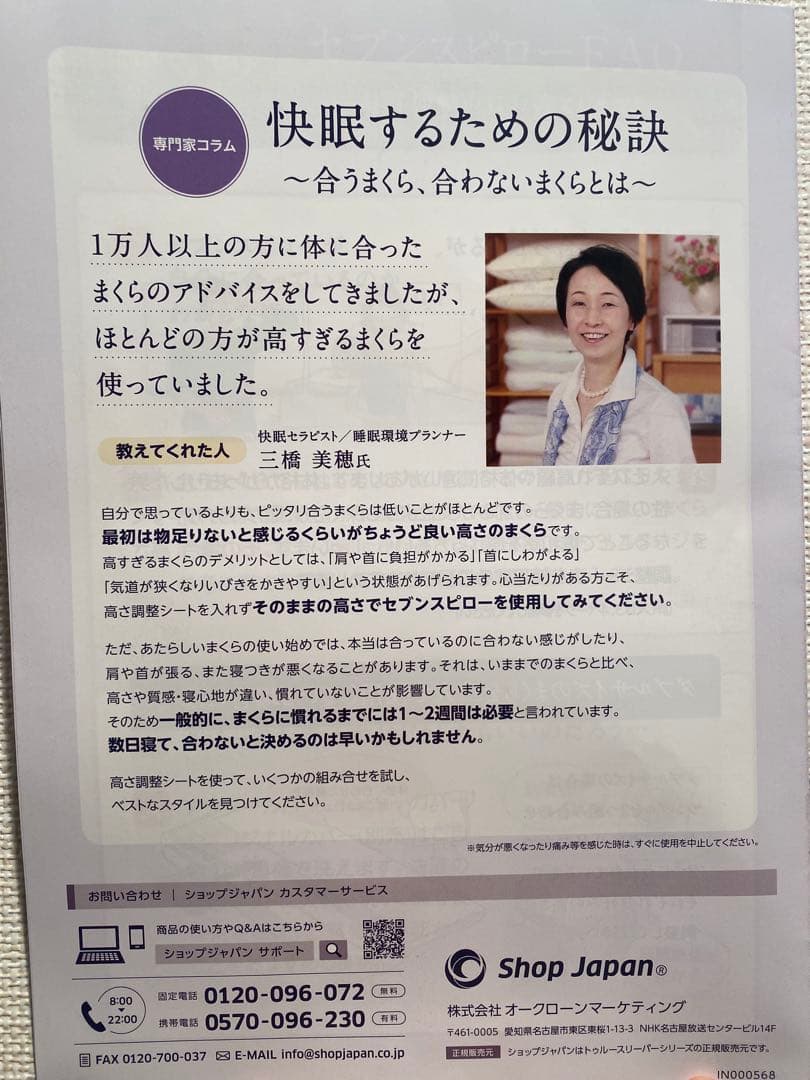 専門家コラム
快眠するための秘訣
～合うまくら、合わないまくらとは～
1万人以上の方に体に合った
まくらのアドバイスをしてきましたが、
ほとんどの方が高すぎるまくらを
使っていました。
教えてくれた人
快眠セラピスト／睡眠環境プランナー
三橋 美穂氏
自分で思っているよりも、ピッタリ合うまくらは低いことがほとんどです。
最初は物足りないと感じるくらいがちょうど良い高さのまくらです。
高すぎるまくらのデメリットとしては、「肩や首に負担がかかる」「首にしわがよる」
「気道が狭くなりいびきをかきやすい」という状態があげられます。心当たりがある方こそ、
高さ調整シートを入れずそのままの高さでセブンスピローを使用してみてください。
ただ、あたらしいまくらの使い始めでは、本当は合っているのに合わない感じがしたり、
肩や首が張る、また寝つきが悪くなることがあります。それは、いままでのまくらと比べ、
高さや質感・寝心地が違い、慣れていないことが影響しています。
そのため一般的に、まくらに慣れるまでには1～2週間は必要と言われています。
数日寝て、合わないと決めるのは早いかもしれません。
高さ調整シートを使って、いくつかの組み合せを試し、
ベストなスタイルを見つけてください。
※気分が悪くなったり痛み等を感じた時は、すぐに使用を中止してください。
お問い合わせ | ショップジャパン カスタマーサービス
商品の使い方やQ&Aはこちらから
ショップジャパン サポート
8:00
22:00
固定電話 0120-096-072 無料
携帯電話 0570-096-230 有料
FAX 0120-700-037 E-MAIL info@shopjapan.co.jp
Shop Japan®
株式会社 オークローンマーケティング
〒461-0005 愛知県名古屋市東区東桜1-13-3 NHK名古屋放送センタービル14F
正規販売元 ショップジャパンはトゥルースリーパーシリーズの正規販売元です。
IN000568